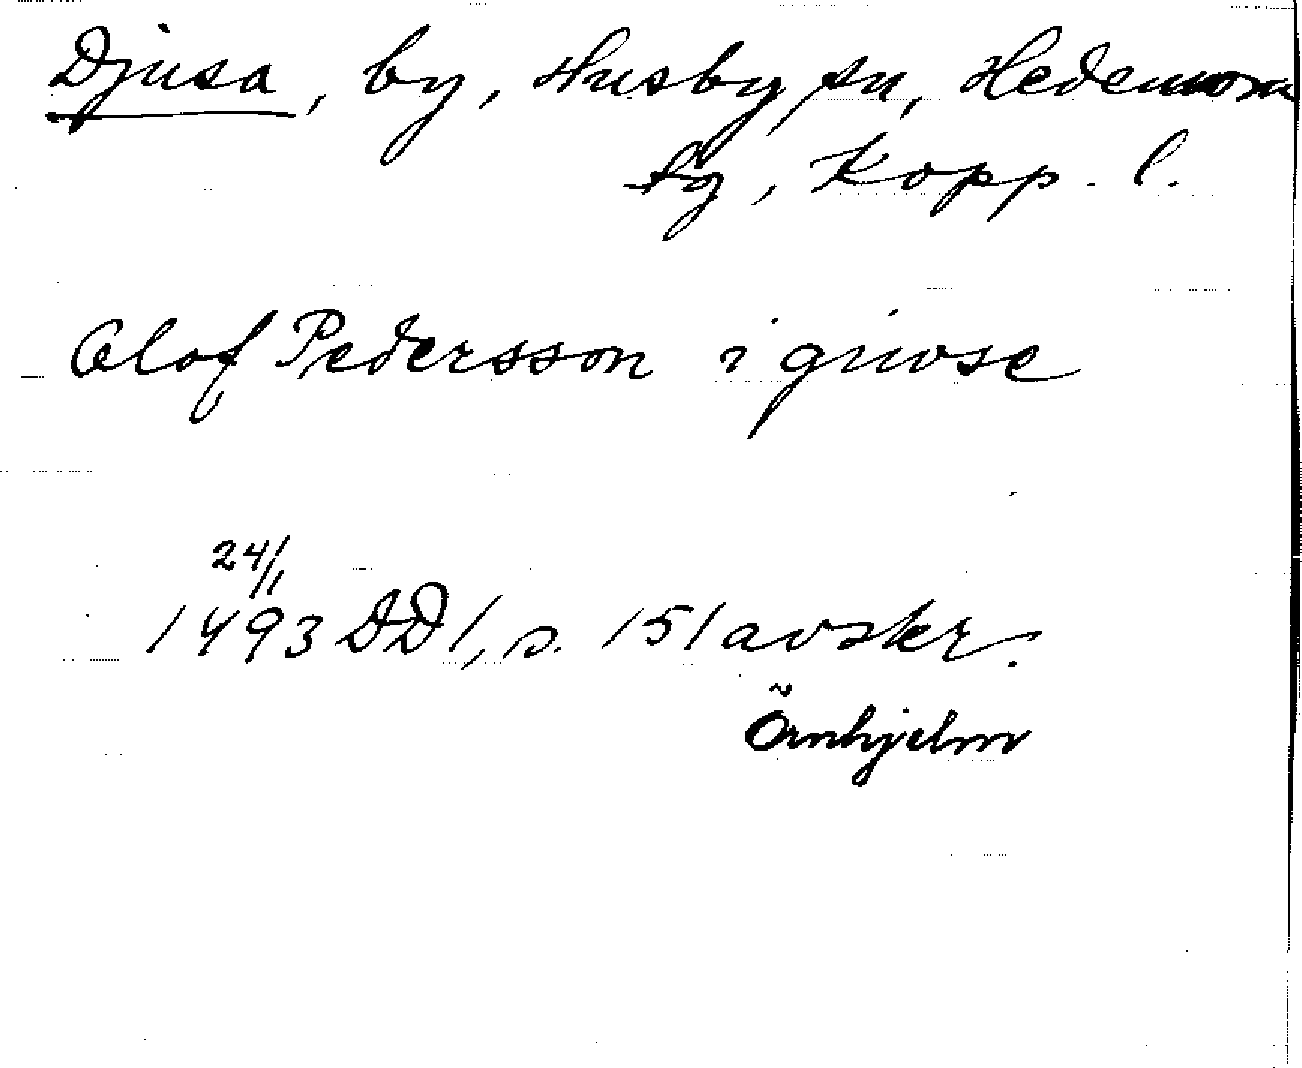 Djusa, by, Husby sn, Hedemora
tg, Kopp. l.
Olof Pedersson i giwse
24/1
1493 DD1, s. 151 avskr.
Örnhjelm